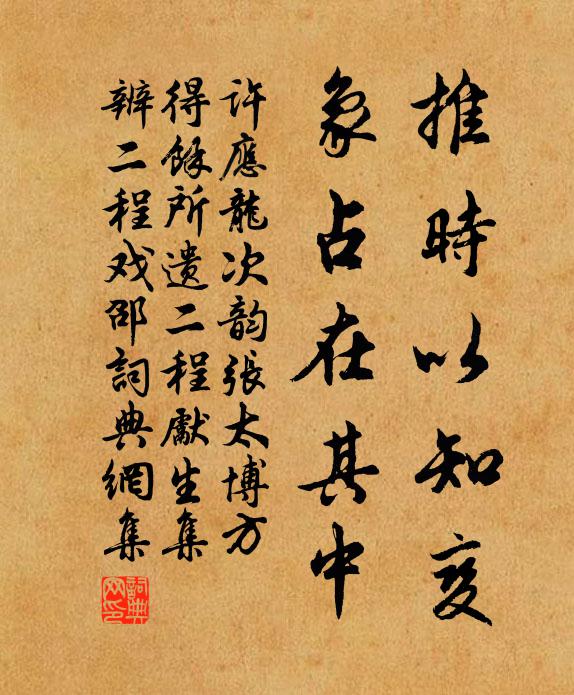 推時以知变
象占在其中
許應龍次韵張太博方
得餘所遺二程獻生集
辨二程戏邵詞典網集
詞典
网印